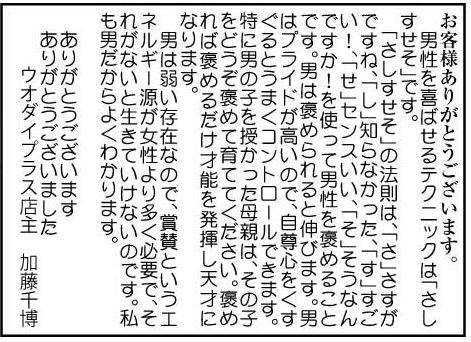 お客様ありがとうございます。
　男性を喜ばせるテクニックは「さし
すせそ」です。
　「さしすせそ」の法則は、「さ」さすが
ですね、「し」知らなかった、「す」すご
い！、「せ」センスいい、「そ」そうなん
ですか！を使って男性を褒めること
です。男は褒められると伸びます。男
はプライドが高いので、自尊心をくす
ぐるとうまくコントロールできます。
特に男の子を授かった母親は、その子
をどうぞ褒めて育ててください。褒め
れば褒めるだけ才能を発揮し天才に
なります。
　男は弱い存在なので、賞賛というエ
ネルギー源が女性より多く必要で、そ
れがないと生きていけないのです。私
も男だからよくわかります。
ありがとうございます
ありがとうございました
ウオダイプラス店主　加藤千博